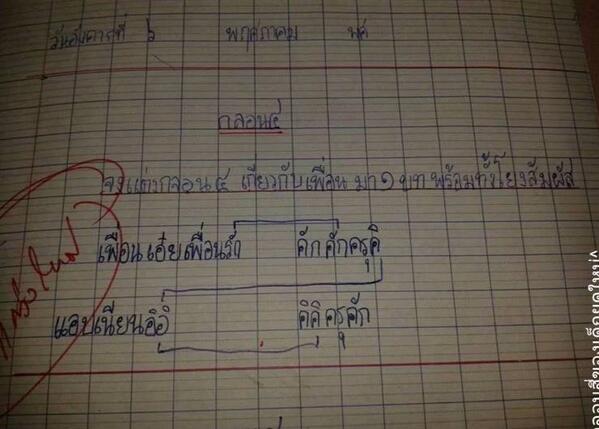 วันอังคารที่ ๖ พฤษภาคม พศ
กลอน๔
จงแต่งกลอน ๔ เกี่ยวกับเพื่อน มา ๑ บท พร้อมทั้งโยงสัมผัส
เพื่อนเอ๋ยเพื่อนรัก คักคักครุคิ
แอบเนียนอิอิ คิคิครุคัก
แต่งใหม่